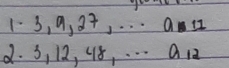 1. 3, 9, 27, ... a 11
2. 3, 12, 48, ... a 12